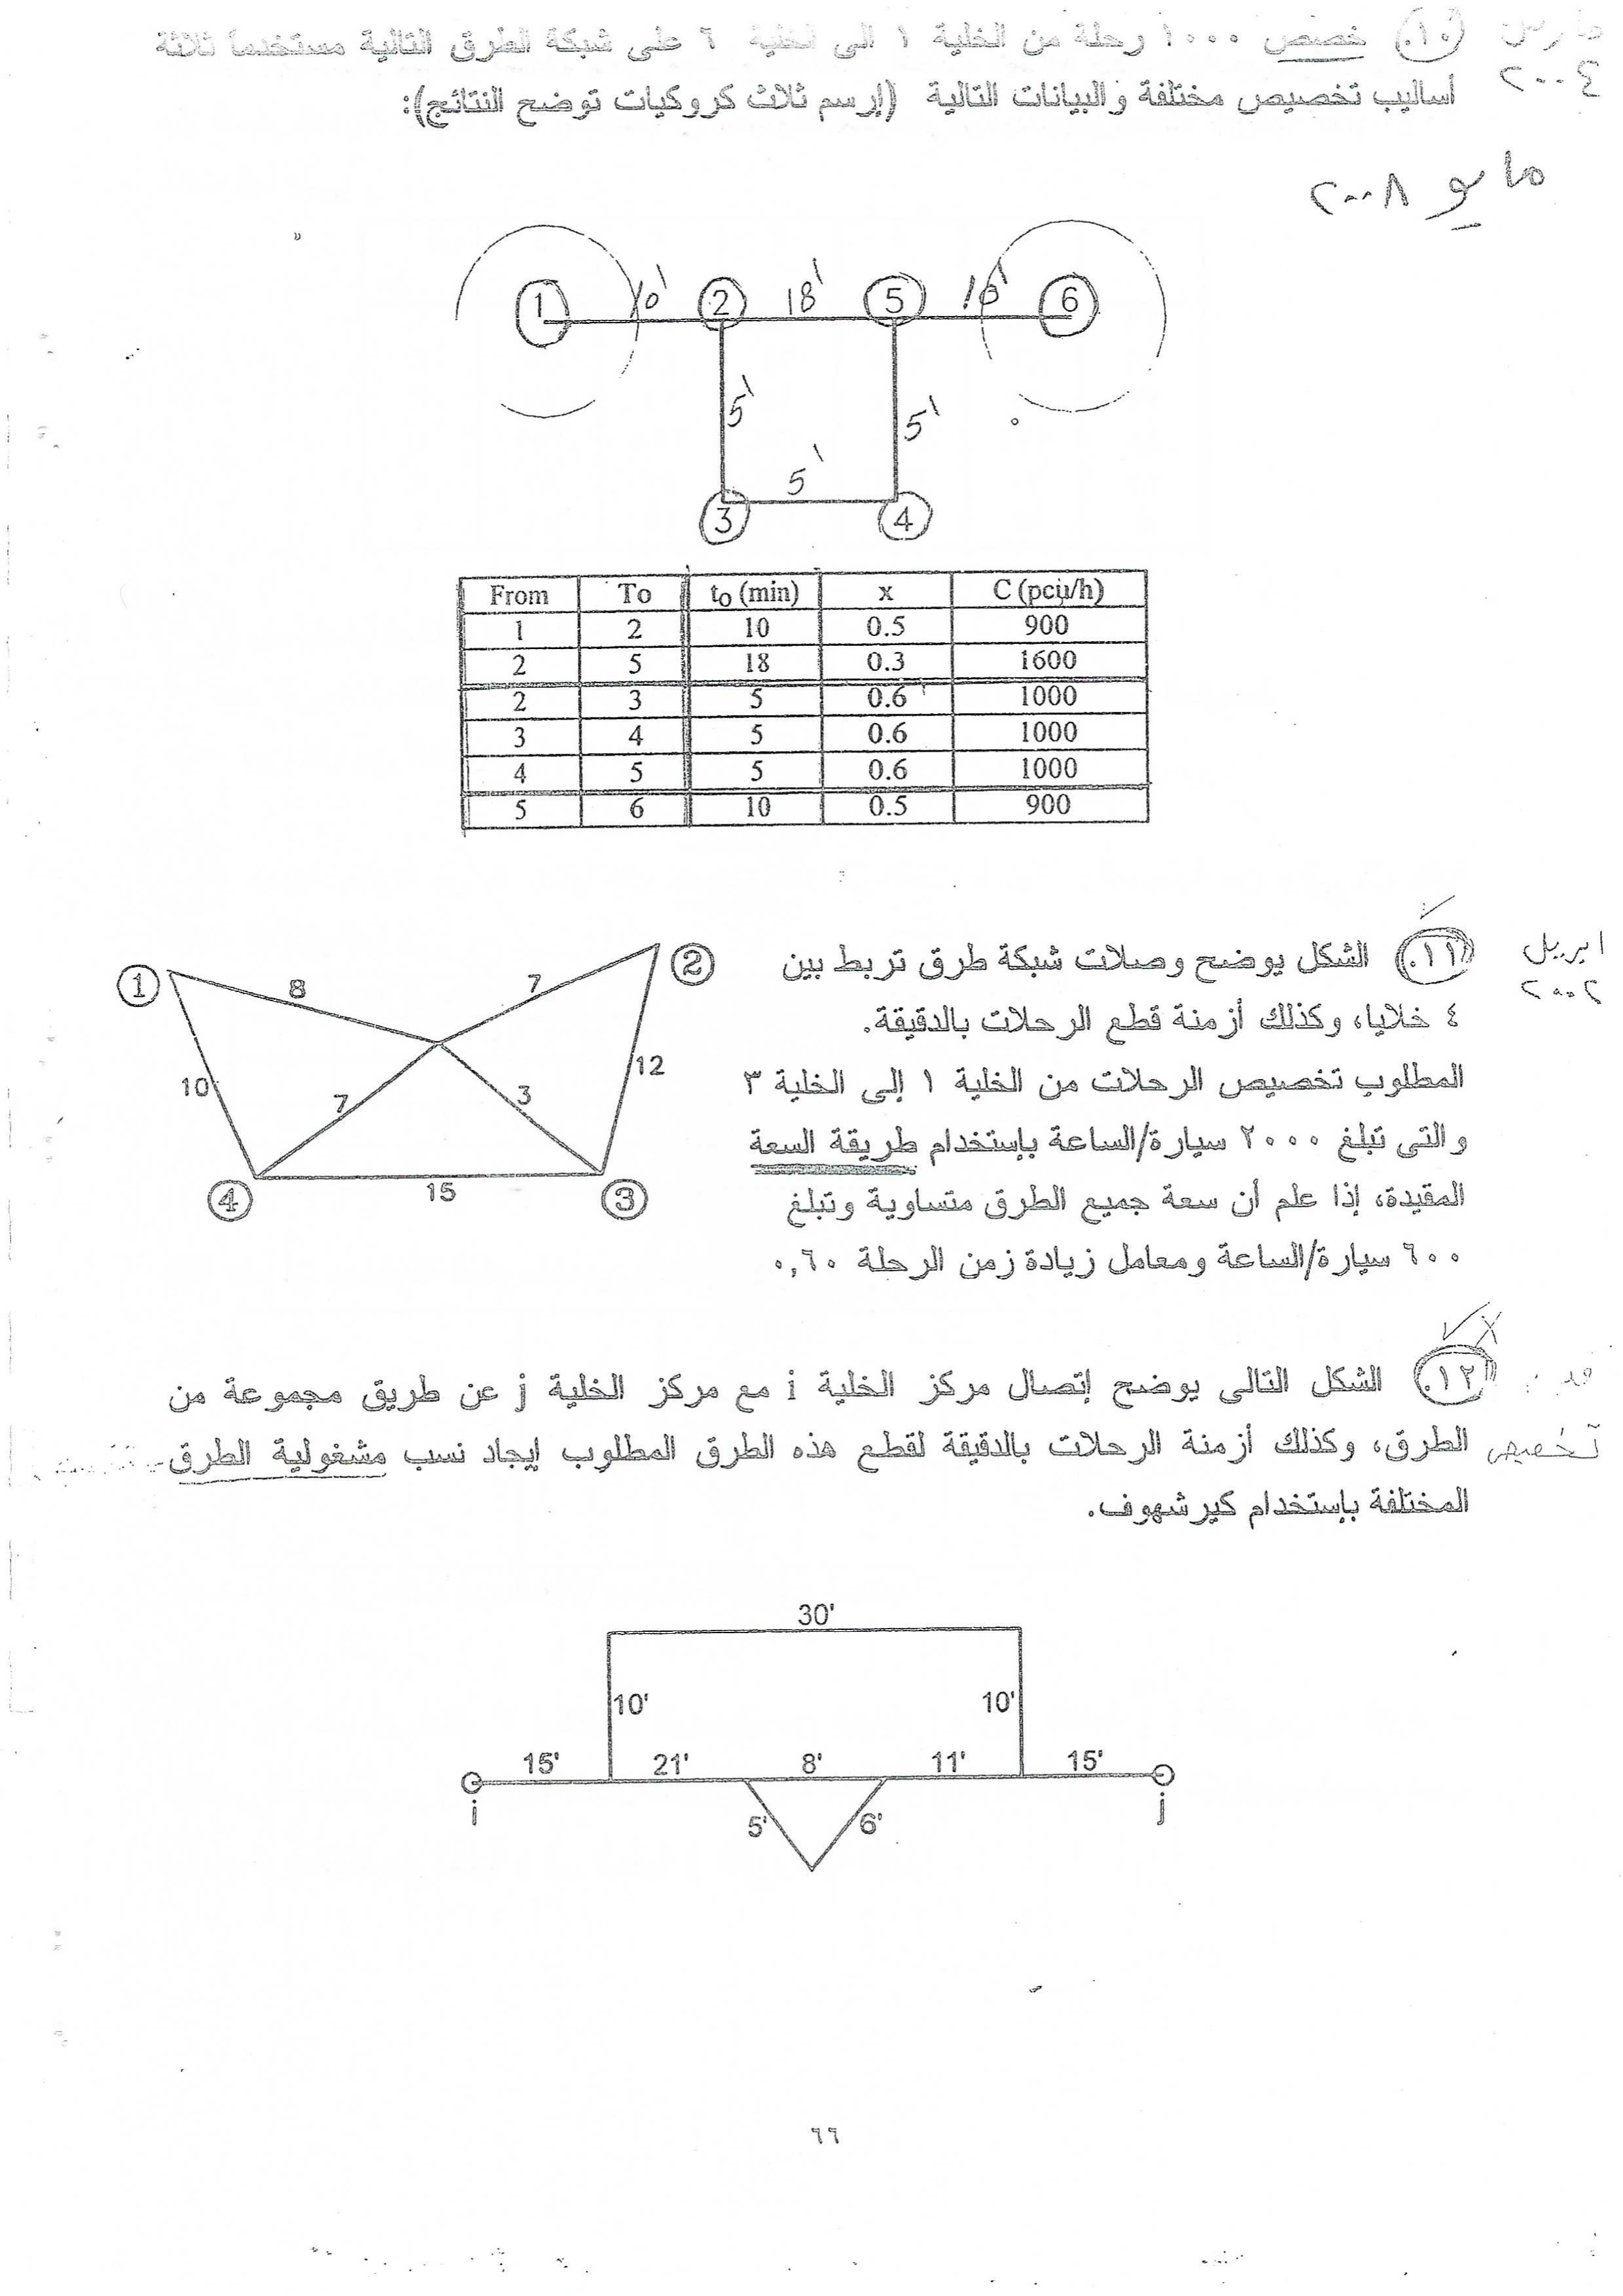 مارس
٢٠٠٤
١٠. خصص ١٠٠٠ رحلة من الخلية ١ الى الخلية ٦ على شبكة الطرق التالية مستخدماً ثلاثة
أساليب تخصيص مختلفة والبيانات التالية (إرسم ثلاث كروكيات توضح النتائج):
مايو ٢٠٠٨
1 10' 2 18' 5 10' 6
5' 5'
5'
3 4
From To t₀ (min) x C (pcu/h)
1 2 10 0.5 900
2 5 18 0.3 1600
2 3 5 0.6 1000
3 4 5 0.6 1000
4 5 5 0.6 1000
5 6 10 0.5 900
ابريل
٢٠٠٢
١١. الشكل يوضح وصلات شبكة طرق تربط بين
٤ خلايا، وكذلك أزمنة قطع الرحلات بالدقيقة.
المطلوب تخصيص الرحلات من الخلية ١ إلى الخلية ٣
والتى تبلغ ٢٠٠٠ سيارة/الساعة بإستخدام طريقة السعة
المقيدة، إذا علم أن سعة جميع الطرق متساوية وتبلغ
٦٠٠ سيارة/الساعة ومعامل زيادة زمن الرحلة ٠,٦٠
1 8 7 2
10 7 3 12
4 15 3
١٢. الشكل التالى يوضح إتصال مركز الخلية i مع مركز الخلية j عن طريق مجموعة من
تخصيص
الطرق، وكذلك أزمنة الرحلات بالدقيقة لقطع هذه الطرق المطلوب إيجاد نسب مشغولية الطرق
المختلفة بإستخدام كيرشهوف.
30'
10' 10'
15' 21' 8' 11' 15'
i 5' 6' j
٦٦